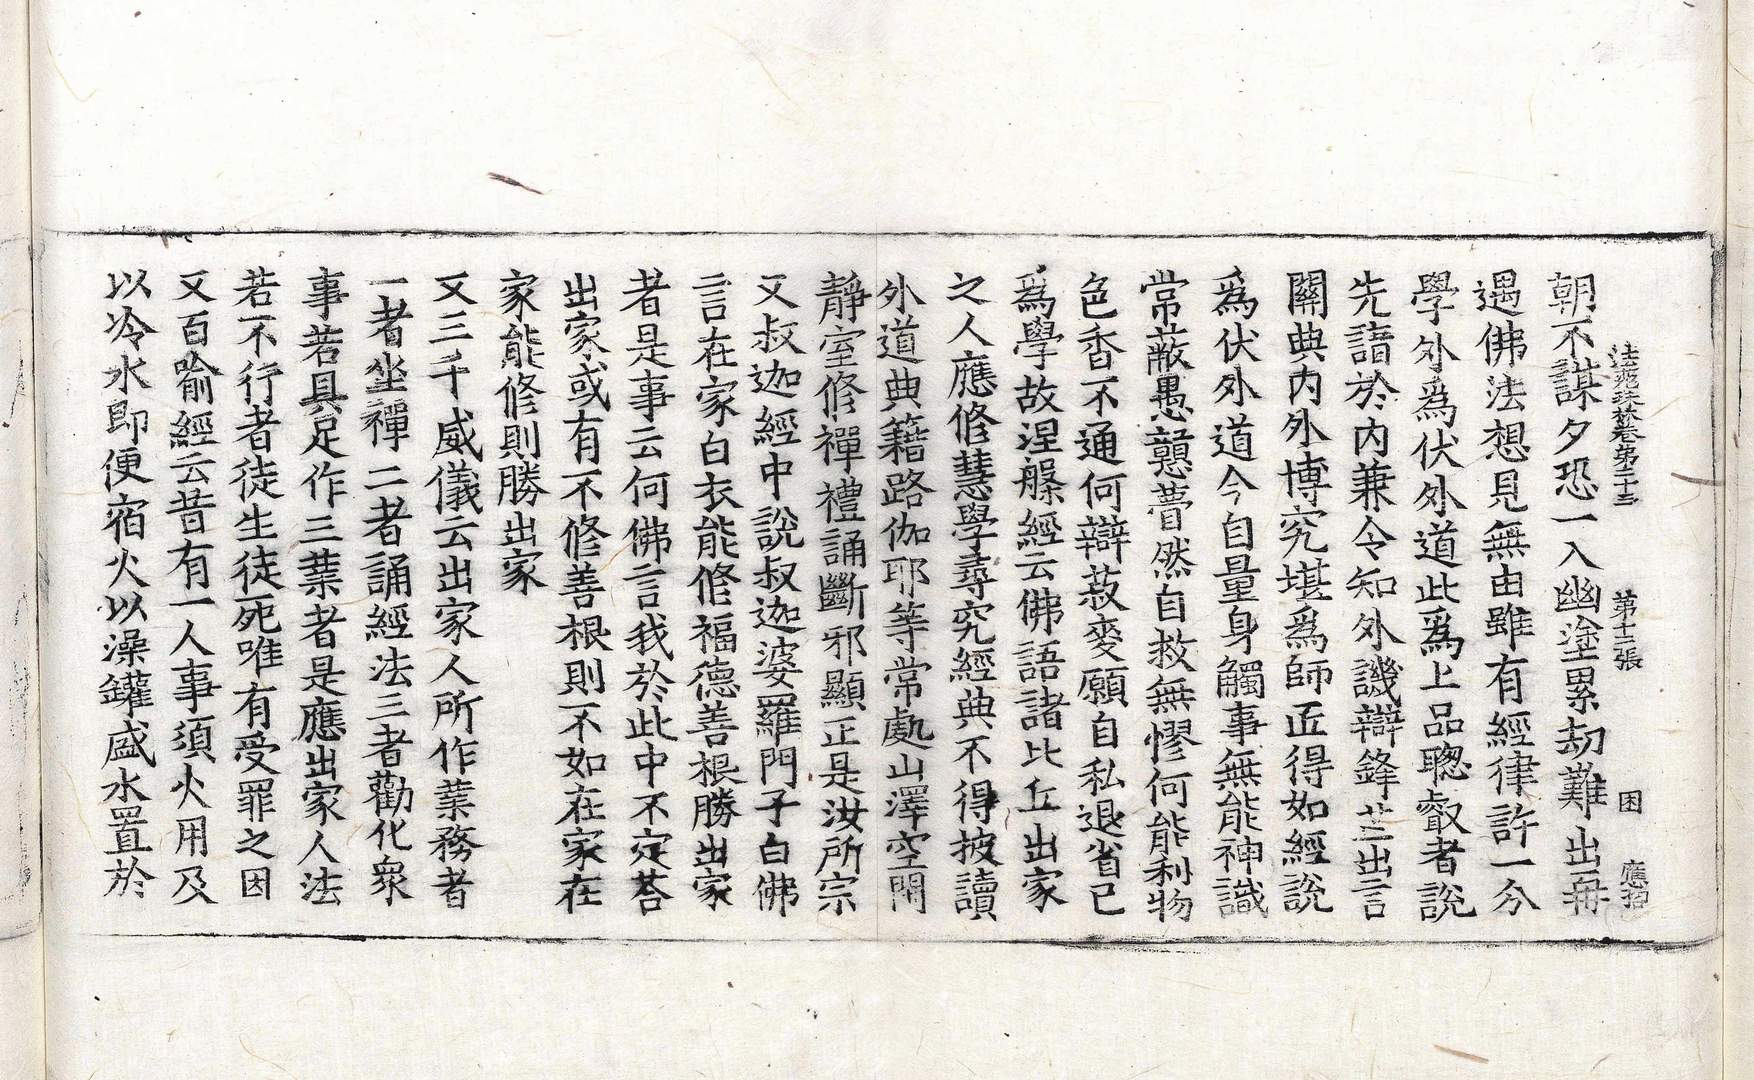 法苑珠林卷第二十三 第十二張 困 應招
朝不謀夕恐一入幽塗累劫難出再
遇佛法想見無由雖有經律許一分
學外爲伏外道此爲上品聰叡者說
先諳於内兼令知外譏辯鋒芒出言
關典内外博究堪爲師匠得如經說
爲伏外道今自量身觸事無能神識
常蔽愚戇瞢然自救無憀何能利物
色香不通何辯菽麥願自私退省己
爲學故涅槃經云佛語諸比丘出家
之人應修慧學尋究經典不得披讀
外道典籍路伽耶等常處山澤空閑
靜室修禪禮誦斷邪顯正是汝所宗
又叔迦經中說叔迦婆羅門子白佛
言在家白衣能修福德善根勝出家
者是事云何佛言我於此中不定荅
出家或有不修善根則不如在家在
家能修則勝出家
又三千威儀云出家人所作業務者
一者坐禪二者誦經法三者勸化衆
事若具足作三業者是應出家人法
若不行者徒生徒死唯有受罪之因
又百喻經云昔有一人事須火用及
以冷水即便宿火以澡鑵盛水置於